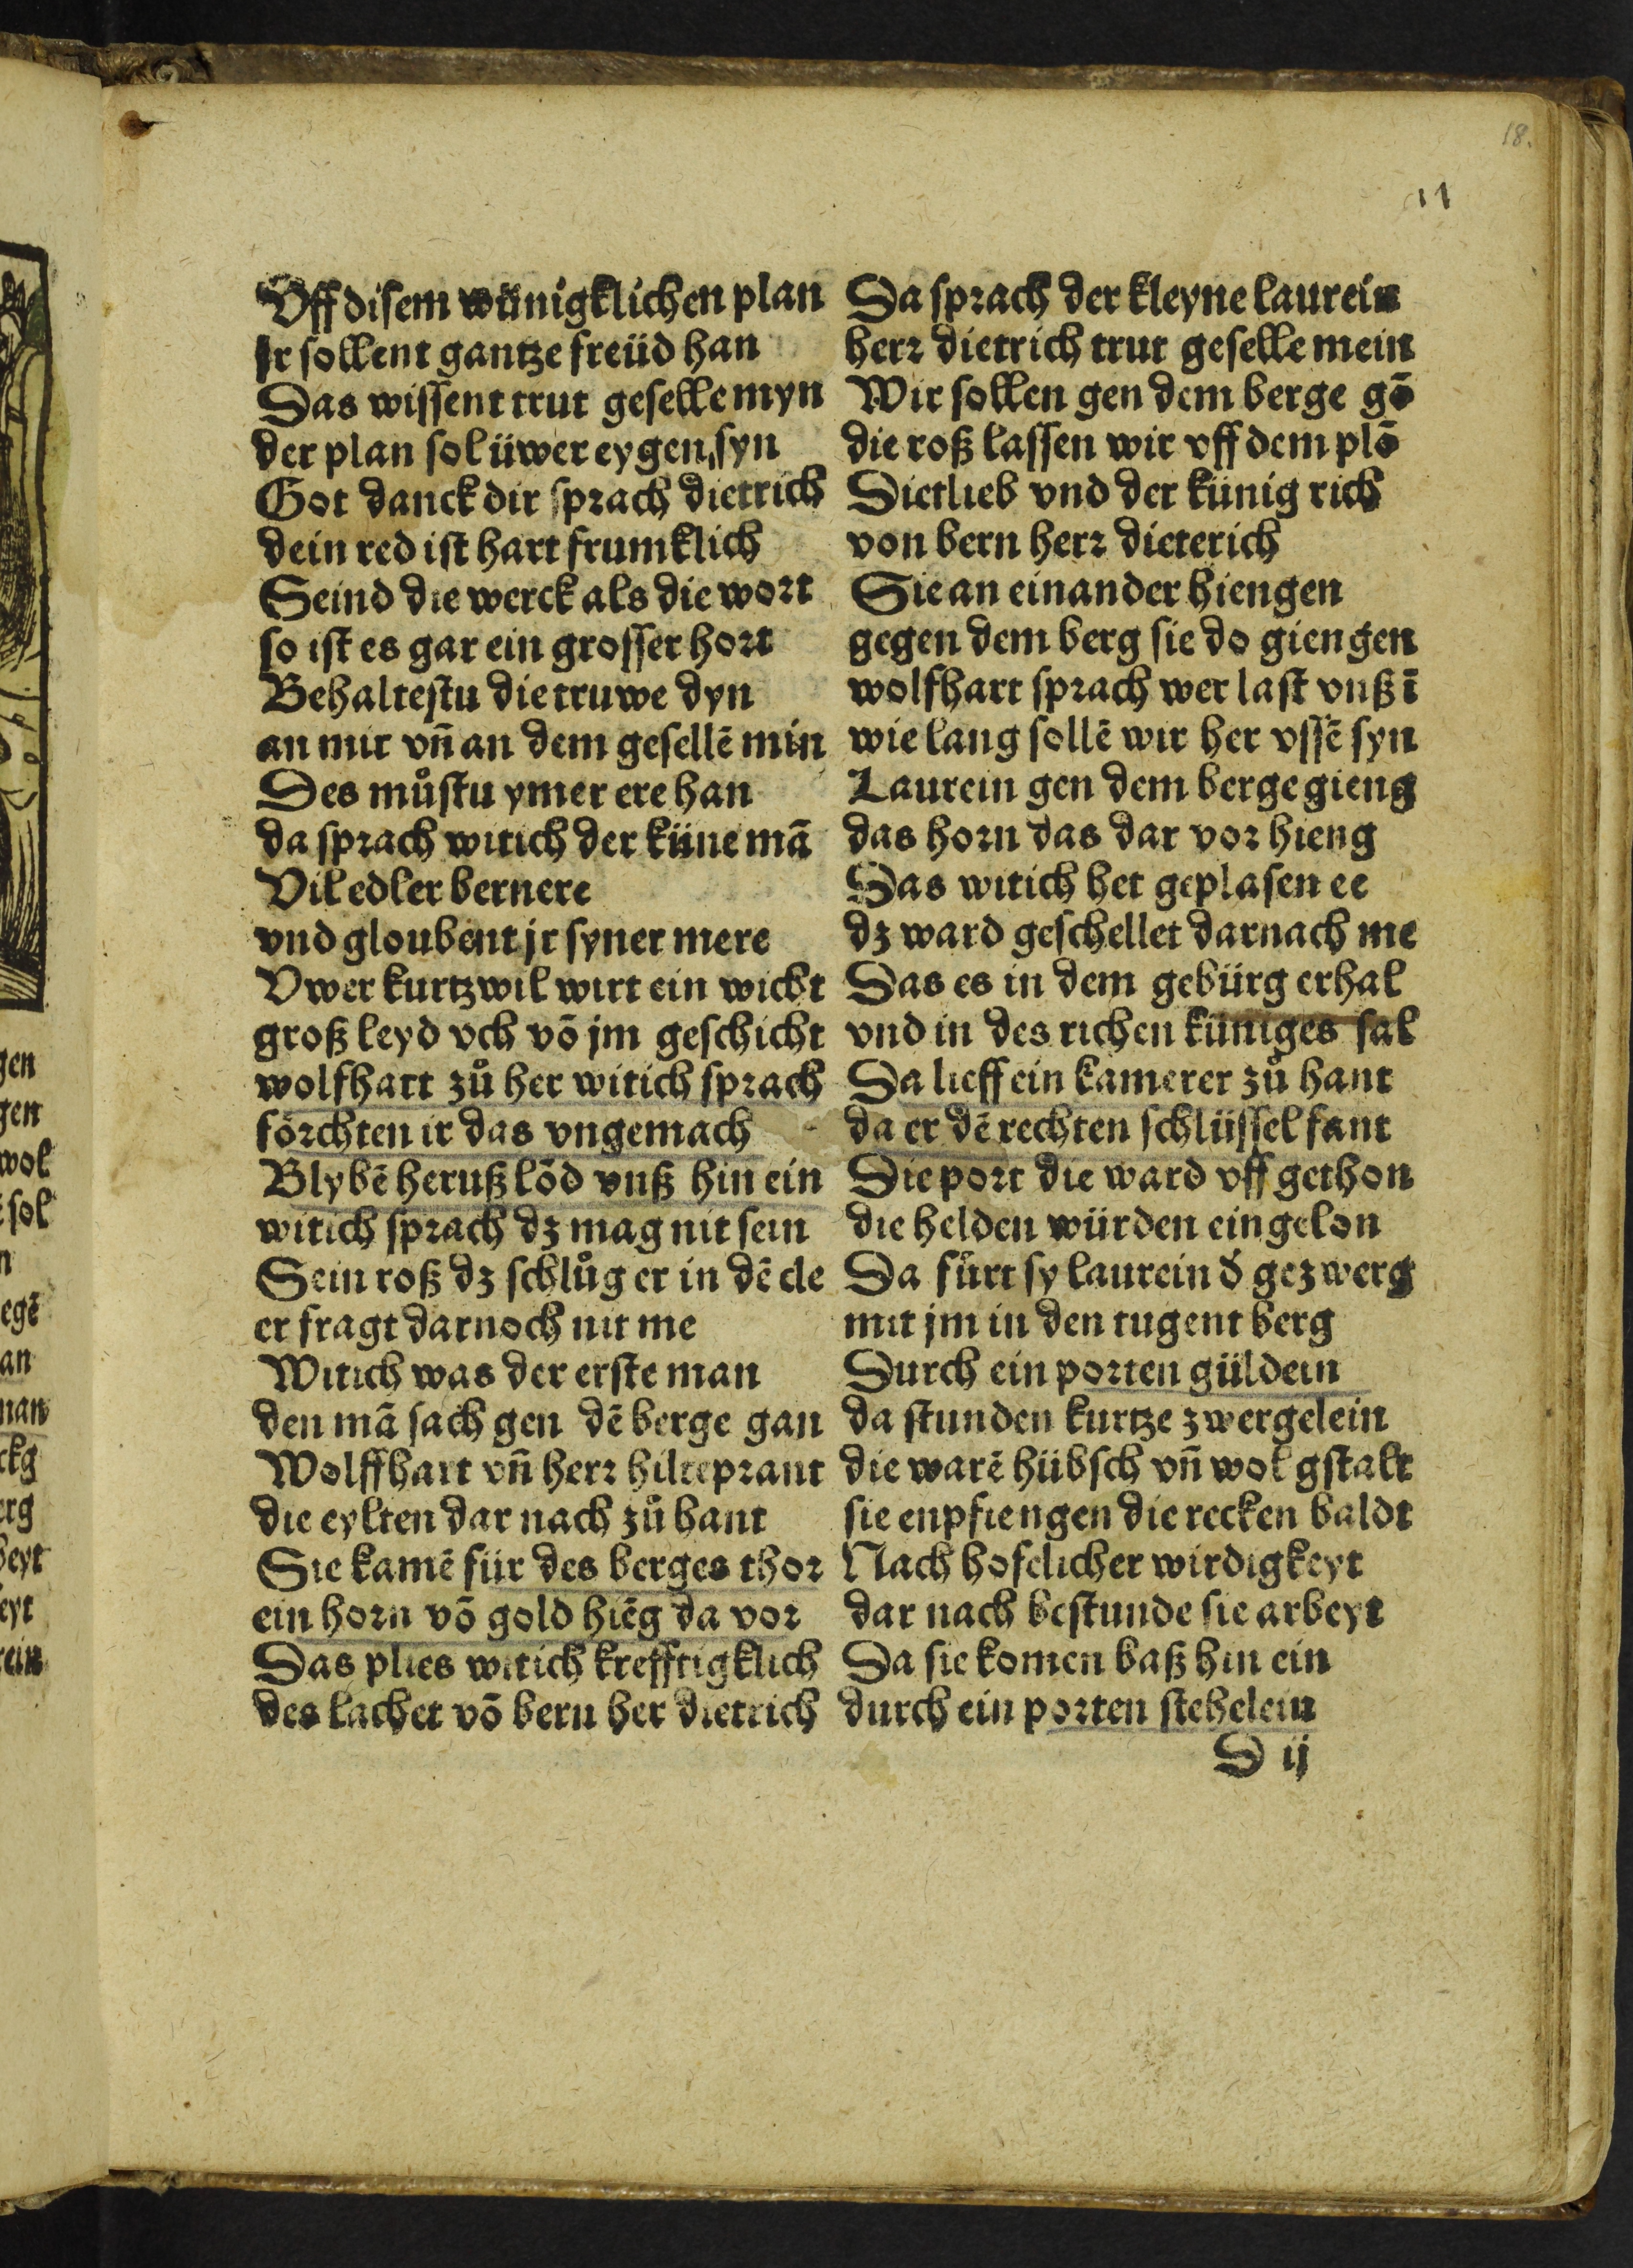 18.
11
Vff disem wünigklichen plan
jr sollent gantze freüd han
Das wissent trut geselle myn
der plan sol üwer eygen syn
Got danck dir sprach dietrich
dein red ist hart frumklich
Seind die werck als die wort
so ist es gar ein grosser hort
Behaltestu die truwe dyn
an mir vn̄ an dem gesellē min
Des můstu ymer ere han
da sprach witich der küne mā
Vil edler bernere
vnd gloubent jr syner mere
Vwer kurtzwil wirt ein wicht
groß leyd vch vō jm geschicht
wolfhart zů her witich sprach
förchten ir das vngemach
Blybē heruß lōd vnß hin ein
witich sprach dz mag nit sein
Sein roß dz schlůg er in dē cle
er fragt darnoch nit me
Witich was der erste man
den mā sach gen dē berge gan
Wolffhart vn̄ herr hilteprant
die eylten dar nach zů hant
Sie kamē für des berges thor
ein horn vō gold hiēg da vor
Das plies witich krefftigklich
des lachet vō bern her dietrich
Da sprach der kleyne laurein
herr dietrich trut geselle mein
Wir sollen gen dem berge gō
die roß lassen wir vff dem plō
Dietlieb vnd der künig rich
von bern herr dieterich
Sie an einander hiengen
gegen dem berg sie do giengen
wolfhart sprach wer last vnß ī
wie lang sollē wir her vssē syn
Laurein gen dem berge gieng
das horn das dar vor hieng
Das witich het geplasen ee
dz ward geschellet darnach me
Das es in dem gebürg erhal
vnd in des richen küniges sal
Da lieff ein kamerer zů hant
da er dē rechten schlüssel fant
Die port die ward vff gethon
die helden würden ein gelon
Da fůrt sy laurein d̄ gezwerg
mit jm in den tugent berg
Durch ein porten güldein
da stunden kurtze zwergelein
die warē hübsch vn̄ wol gstalt
sie enpfiengen die recken baldt
Nach hofelicher wirdigkeyt
dar nach bestunde sie arbeyt
Da sie komen baß hin ein
durch ein porten stehelein
D ij